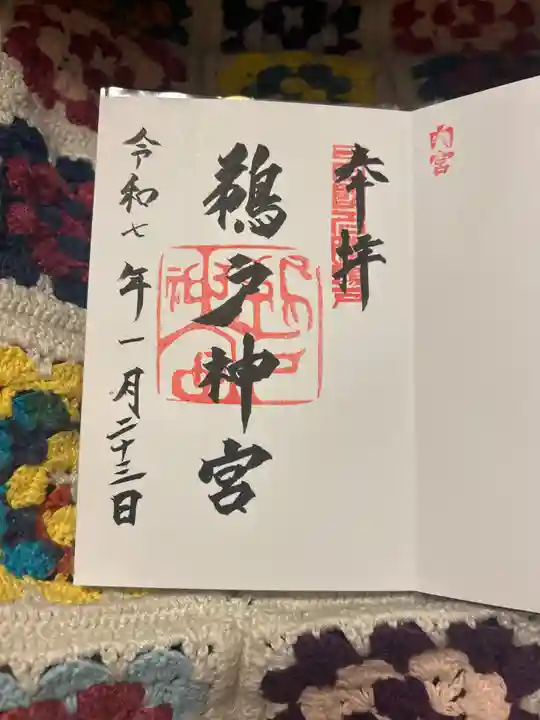 内宮
奉拝
鵜戸神宮
令和七年一月二十三日